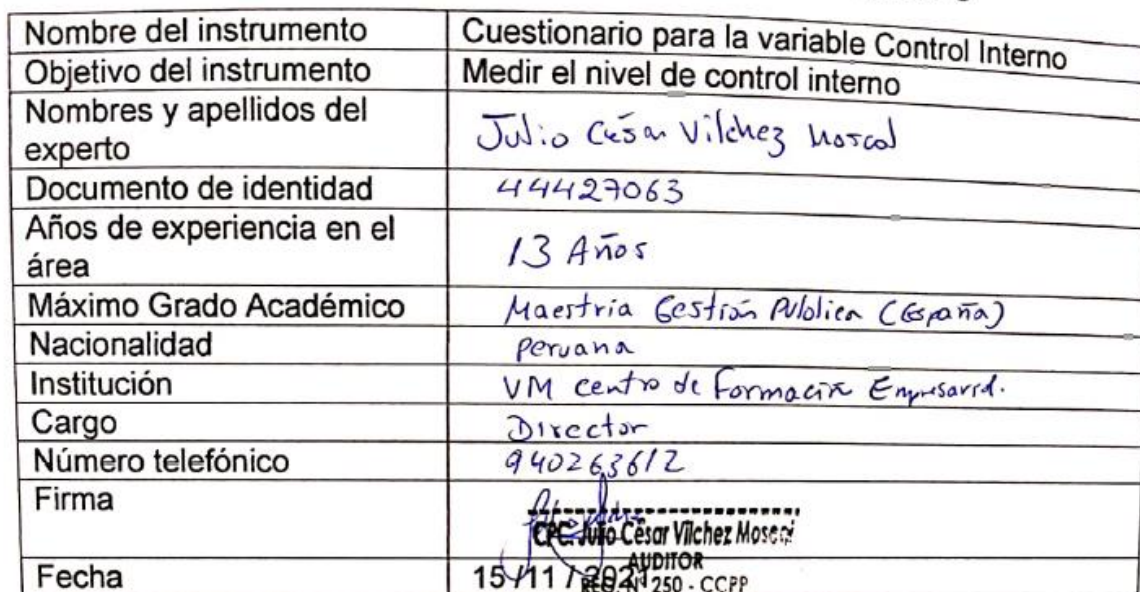 Nombre del instrumento
Cuestionario para la variable Control Interno
Objetivo del instrumento
Medir el nivel de control interno
Nombres y apellidos del
experto
Julio César Vilchez Moscol
Documento de identidad
44427063
Años de experiencia en el
área
13 Años
Máximo Grado Académico
Maestria Gestión Publica (España)
Nacionalidad
peruana
Institución
VM centro de Formación Empresarial.
Cargo
Director
Número telefónico
940263612
Firma
CPC. Julio César Vilchez Moscol
AUDITOR
REG. N° 250 - CCPP
Fecha
15 / 11 / 2021